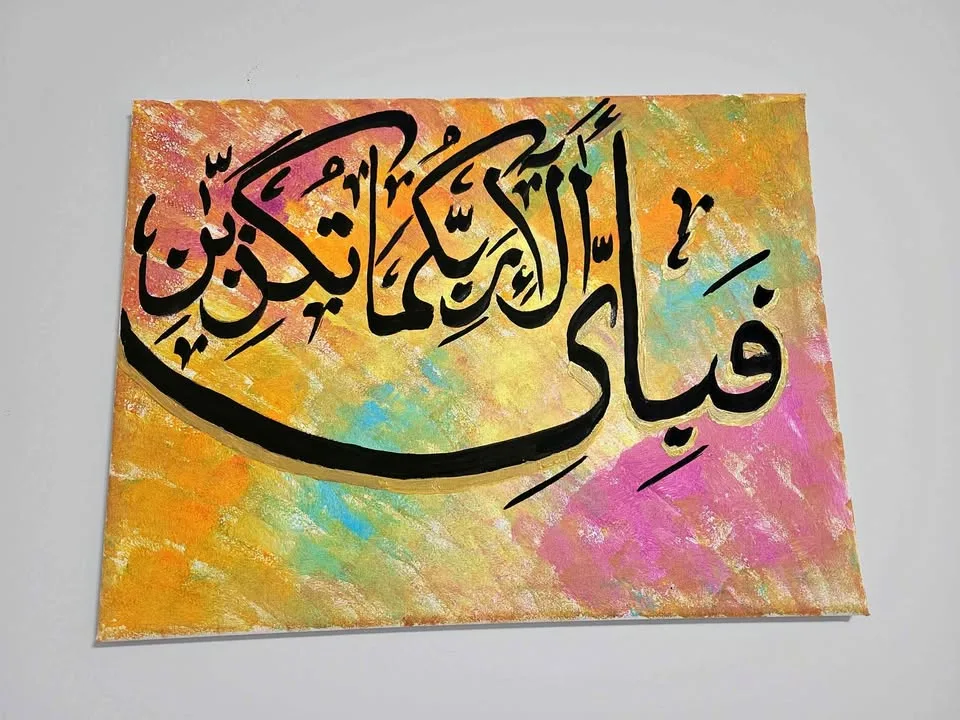 فَبِأَيِّ أَلَآءِ رَبِّكُمَا تُكَذِّبٰنِ